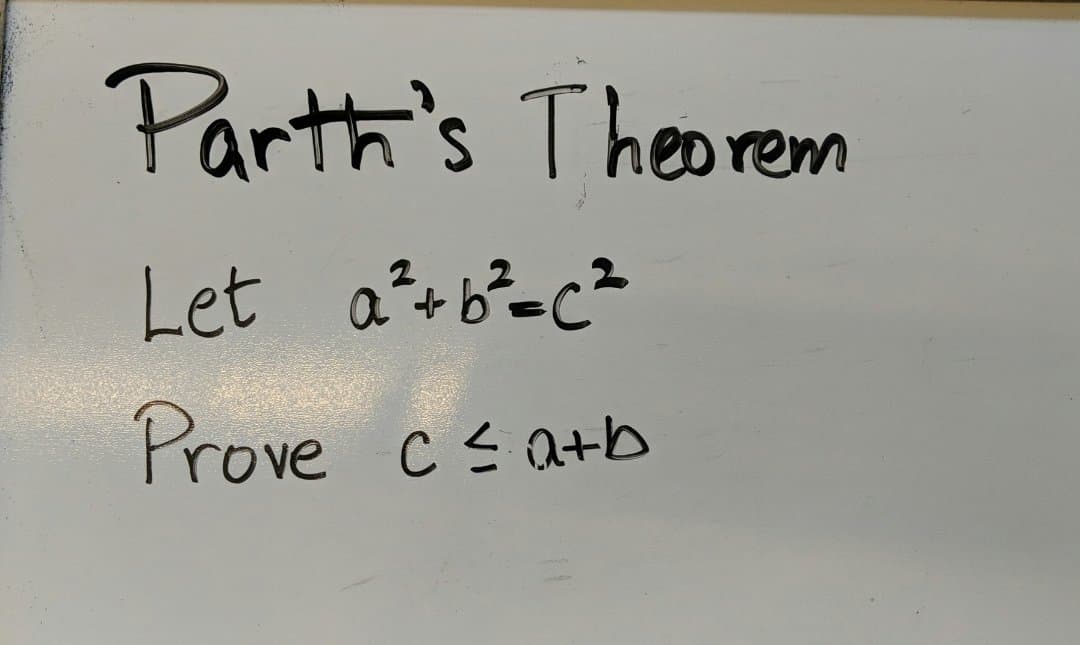 Parth's Theorem
Let a²+b²=c²
Prove c ≤ a+b